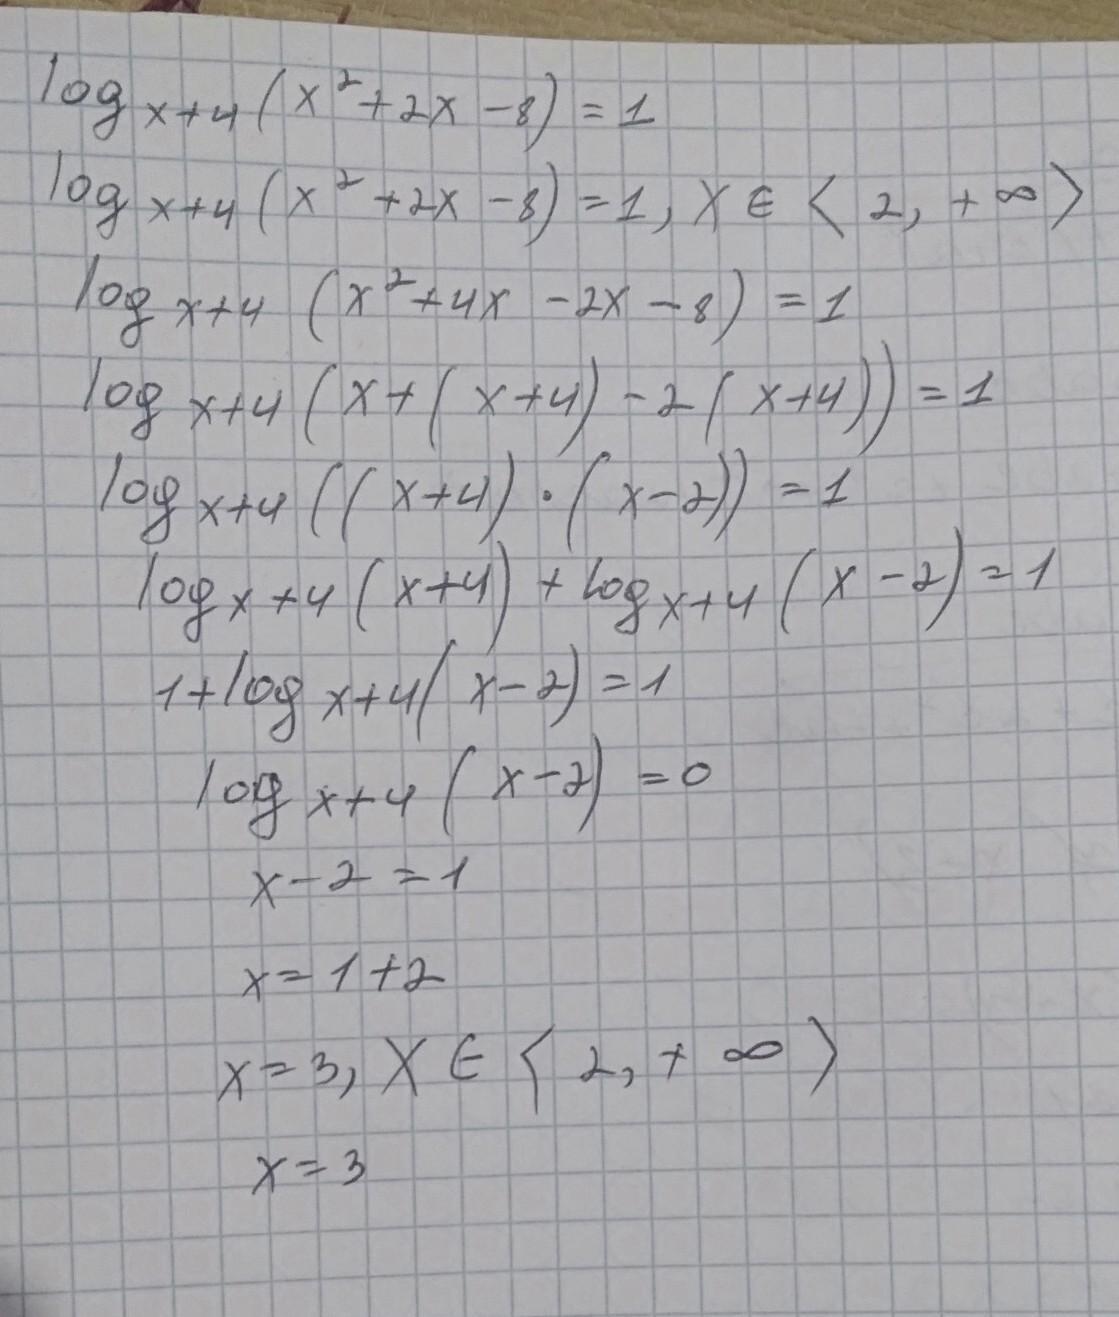 log x+4 (x² + 2x - 8) = 1
log x+4 (x² + 2x - 8) = 1, X ∈ ⟨ 2, + ∞ ⟩
log x+4 (x² + 4x - 2x - 8) = 1
log x+4 (x + (x+4) - 2 (x+4)) = 1
log x+4 ((x+4) · (x-2)) = 1
log x+4 (x+4) + log x+4 (x - 2) = 1
1 + log x+4 (x - 2) = 1
log x+4 (x-2) = 0
x - 2 = 1
x = 1 + 2
x = 3, X ∈ ⟨ 2, + ∞ ⟩
x = 3